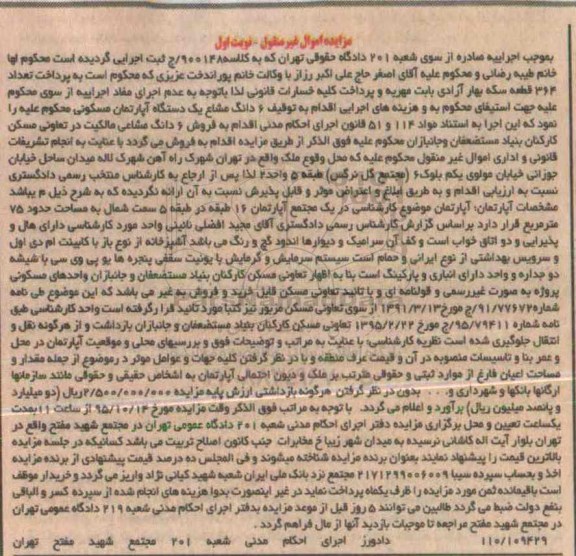 مزایده اموال غیر منقول - نوبت اول
بموجب اجراییه صادره از سوی شعبه ۲۰۱ دادگاه حقوقی تهران که به کلاسه ۹۰۰۱۴۸/ج ثبت اجرایی گردیده است محکوم لها
خانم طیبه رضائی و محکوم علیه آقای اصغر حاج علی اکبر رزاز با وکالت خانم پوراندخت عزیزی که محکوم است به پرداخت تعداد
۳۶۴ قطعه سکه بهار آزادی بابت مهریه و پرداخت کلیه خسارات قانونی لذا باتوجه به عدم اجرای مفاد اجراییه از سوی محکوم
علیه جهت استیفای محکوم به و هزینه های اجرایی اقدام به توقیف ۶ دانگ مشاع یک دستگاه آپارتمان مسکونی محکوم علیه را
نمود که این اجرا به استناد مواد ۱۱۴ و ۵۱ قانون اجرای احکام مدنی اقدام به فروش ۶ دانگ مشاعی مالکیت در تعاونی مسکن
کارکنان بنیاد مستضعفان وجانبازان محکوم علیه فوق الذکر از طریق مزایده اقدام به فروش می گردد با عنایت به انجام تشریفات
قانونی و اداری اموال غیر منقول محکوم علیه که محل وقوع ملک واقع در تهران شهرک راه آهن شهرک لاله میدان ساحل خیابان
جوزانی خیابان مولوی یکم بلوک۶ (مجتمع گل نرگس) طبقه ۵ واحد۲ لذا پس از ارجاع به کارشناس منتخب رسمی دادگستری
نسبت به ارزیابی اقدام و به طریق ابلاغ و اعتراض موثر و قابل پذیرش نسبت به آن ارائه نگردیده که به شرح ذیل م یباشد
مشخصات آپارتمان: آپارتمان موضوع کارشناسی در یک مجتمع آپارتمان ۱۶ طبقه در طبقه ۵ سمت شمال به مساحت حدود ۷۵
مترمربع قرار دارد براساس گزارش کارشناس رسمی دادگستری آقای مجید افضلی نائینی واحد مورد کارشناسی دارای هال و
پذیرایی و دو اتاق خواب است و کف آن سرامیک و دیوارها اندود گچ و رنگ می باشد آشپزخانه از نوع باز با کابینت ام دی اول
و سرویس بهداشتی از نوع ایرانی و حمام است سیستم سرمایش و گرمایش با یونیت سقفی پنجره ها یو پی وی سی با شیشه
دو جداره و واحد دارای انباری و پارکینگ است بنا به اظهار تعاونی مسکن کارکنان بنیاد مستضعفان و جانبازان واحدهای مسکونی
پروژه به صورت غیررسمی و قولنامه ای و با تائید تعاونی مسکن قابل خرید و فروش به غیر می باشد که این موضوع طی نامه
شماره۹۱/۷۷۶۷۲/ج مورخ۱۳۹۱/۳/۱۳ از سوی تعاونی مسکن مزبور نیز کتبا مورد تائید قرا رگرفته است واحد کارشناسی طبق
نامه شماره ۹۵/۷۹۴۱۱/ج مورخ ۱۳۹۵/۲/۲۲ تعاونی مسکن کارکنان بنیاد مستضعفان و جانبازان بازداشت و از هرگونه نقل و
انتقال جلوگیری شده است نظریه کارشناسی: با عنایت به مراتب و توضیحات فوق و بررسیهای محلی و موقعیت آپارتمان در محل
و عمر بنا و تاسیسات منصوبه در آن و قیمت عرف منطقه و با در نظر گرفتن کلیه جهات و عوامل موثر د رموضوع از جمله مقدار و
مساحت اعیان فارغ از موارد ثبتی و حقوقی مترتب بر ملک و دیون احتمالی آپارتمان به اشخاص حقیقی و حقوقی مانند سازمانها
ارگانها بانکها و شهرداری و. . . بدون در نظر گرفتن هرگونه بازداشتی ارزش پایه مزایده ۲/۵۰۰/۰۰۰/۰۰۰ریال (دو میلیارد
و پانصد میلیون ریال) برآورد و اعلام می گردد. با توجه به مراتب فوق الذکر وقت مزایده مورخ ۹۵/۱۰/۱۴ از ساعت ۱۱ بمدت
یکساعت تعیین و محل برگزاری مزایده دفتر اجرای احکام مدنی شعبه ۲۰۱ دادگاه عمومی تهران در مجتمع شهید مفتح واقع در
تهران بلوار آیت اله کاشانی نرسیده به میدان شهر زیبا خ مخابرات جنب کانون اصلاح تربیت می باشد کسانیکه در جلسه مزایده
بالاترین قیمت را پیشنهاد نمایند بعنوان برنده مزایده شناخته میشوند و فی المجلس ده درصد قیمت پیشنهادی از برنده مزایده
اخذ و بحساب سپرده سیبا ۲۱۷۱۲۹۹۰۰۶۰۰۹ مجتمع نزد بانک ملی ایران شعبه شهید کیانی نژاد واریز می گردد و خریدار موظف
است باقیمانده ثمن مورد مزایده را ظرف یکماه پرداخت نماید در غیر اینصورت بدوا هزینه های انجام شده از سپرده کسر و الباقی
بنفع دولت ضبط می گردد طالبین می توانند ۵ روز قبل از موعد مزایده بدفتر اجرای احکام مدنی شعبه ۲۱۹ دادگاه عمومی تهران
در مجتمع شهید مفتح مراجعه تا موجبات بازدید آنها از مال فراهم گردد .
۱۱۰/۱۰۹۴۲۹ دادورز اجرای احکام مدنی شعبه ۲۰۱ مجتمع شهید مفتح تهران